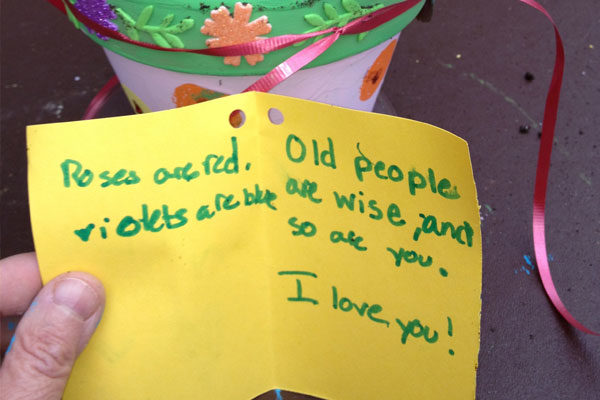 Roses are red.
violets are blue
Old people
are wise, and
so are you.
I love you!